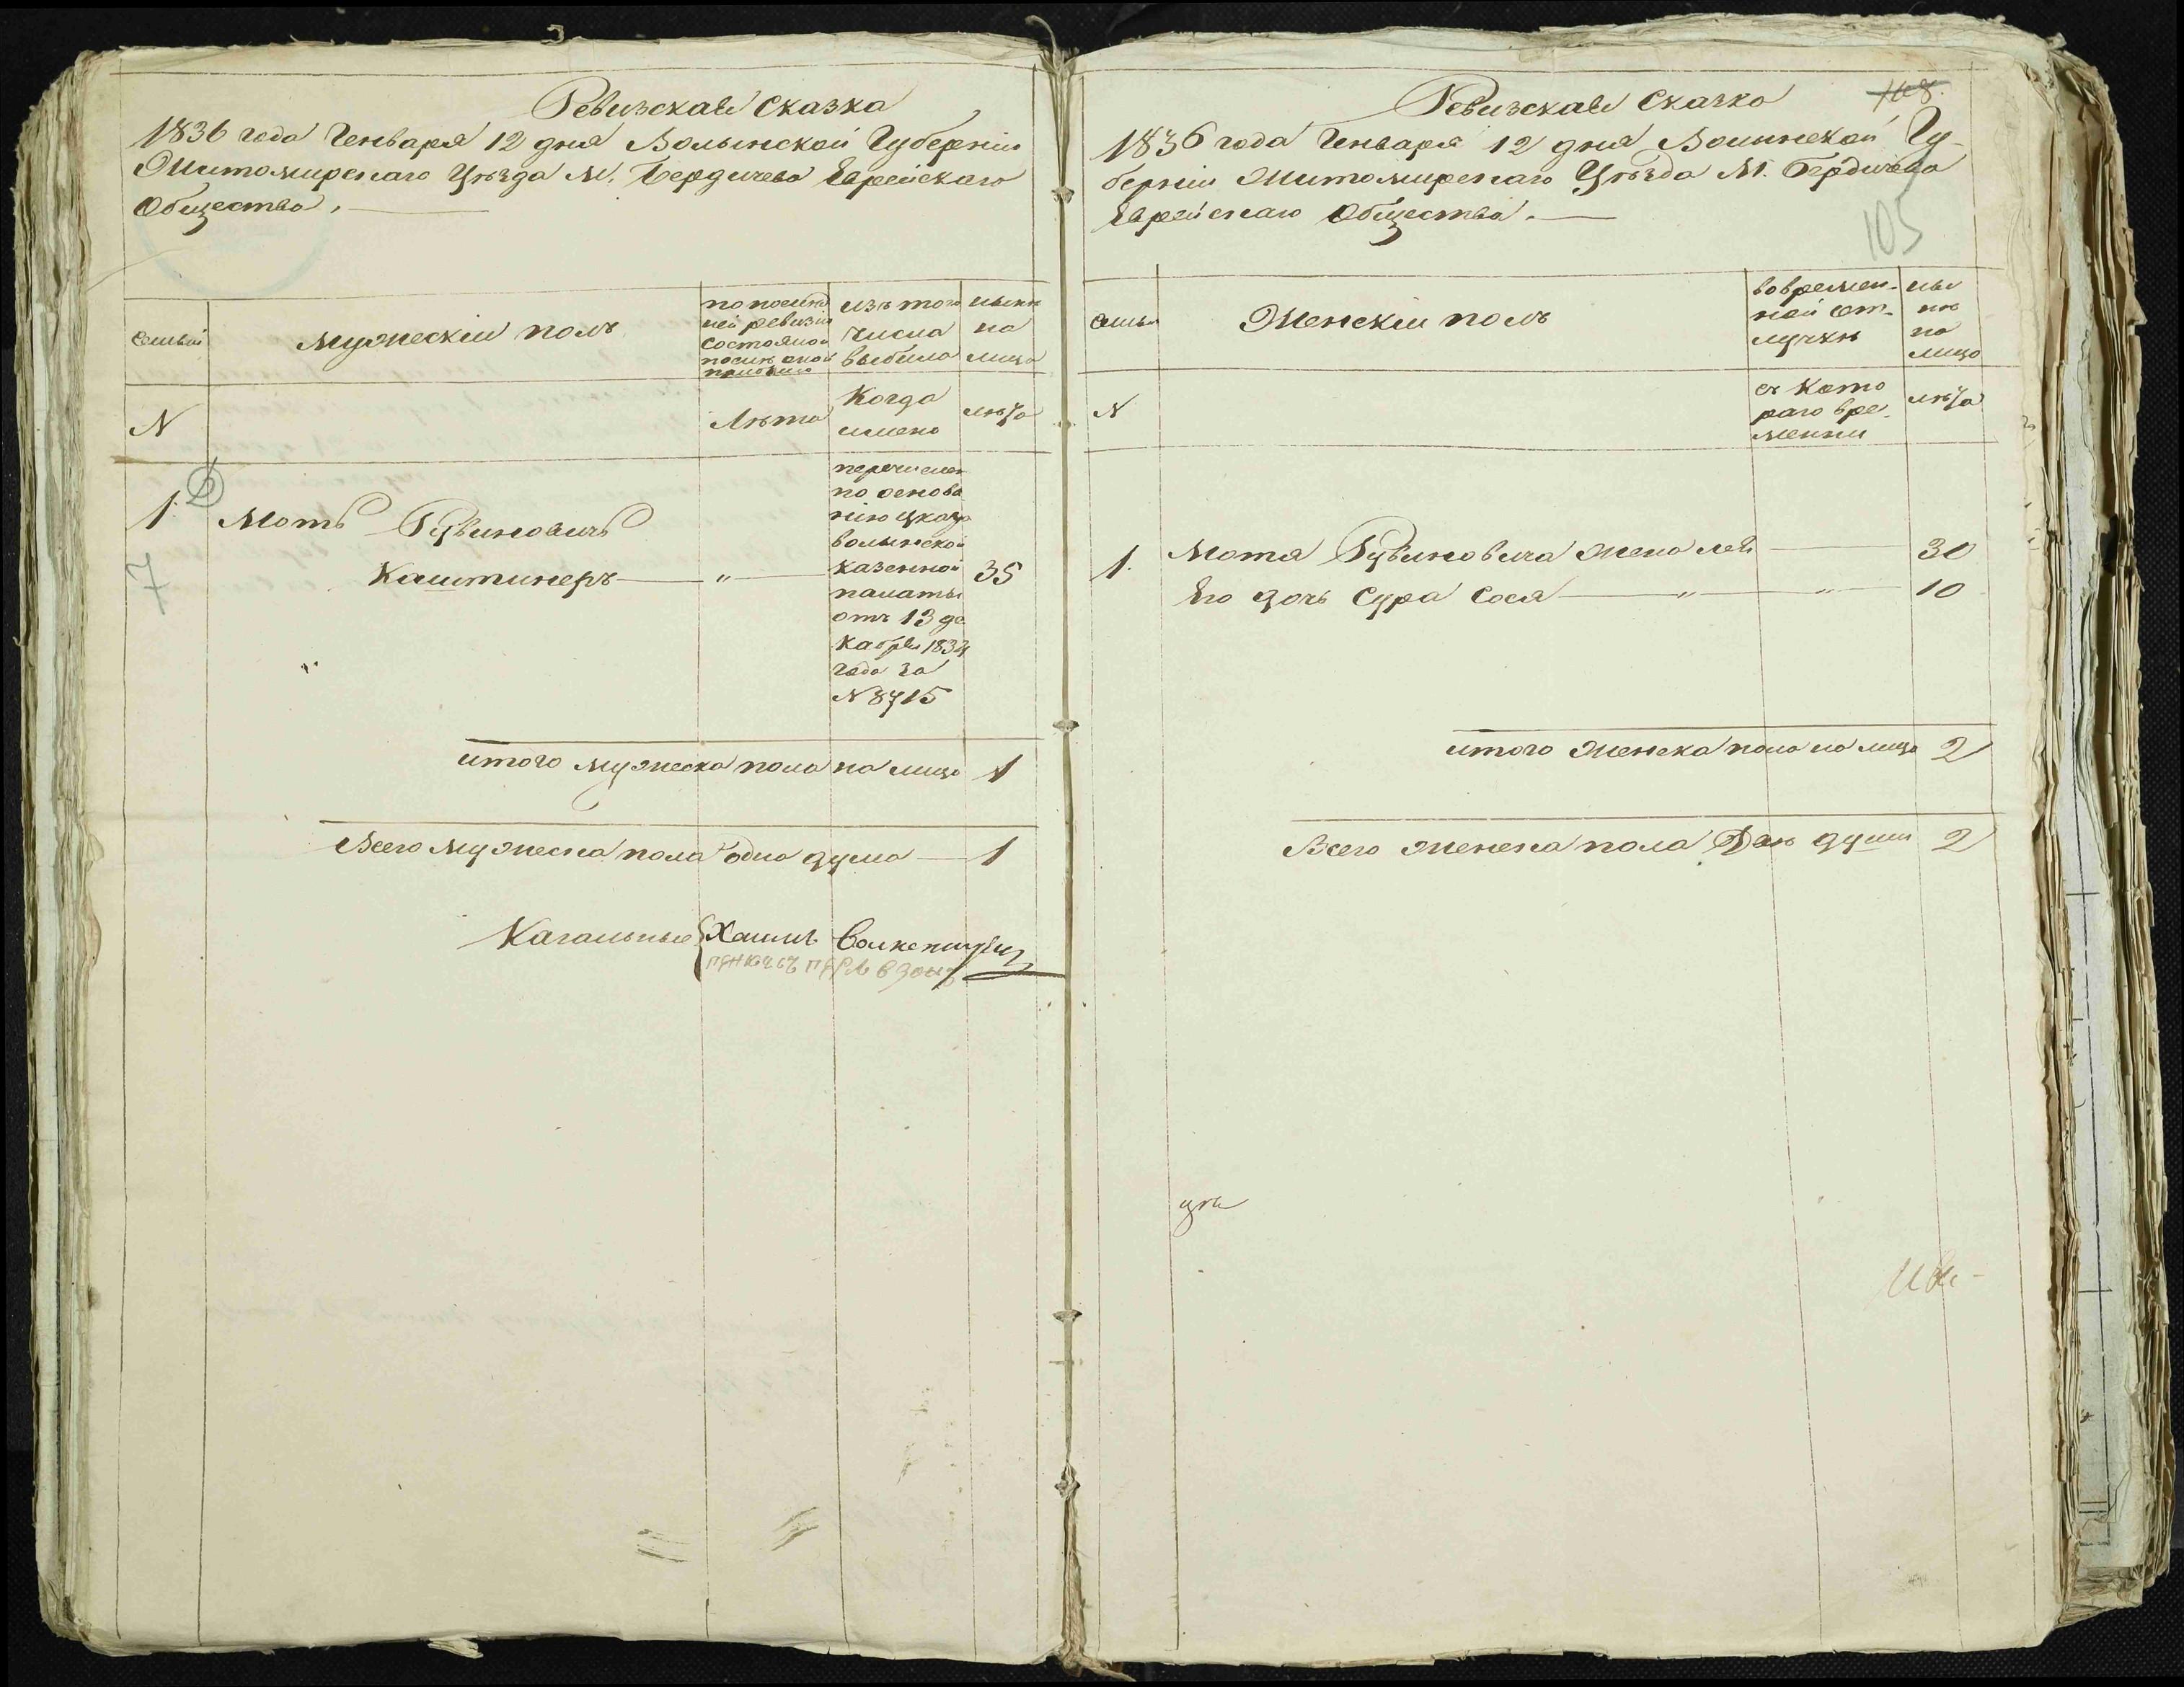 Ревизская Сказка
1836 года Генваря 12 дня Волынской Губерніи
Житомирскаго Уѣзда М. Бердичева Еврейскаго
Общества.
Семьи
Мужескій полъ
по послѣд
ней ревизіи
состояло и
послѣ оной
прибыло
изъ того
числа
выбыло
нынѣ
на
лицо
N
Лѣта
Когда
имено
лѣта
1.
7
Моть Рувиновичъ
Каштинеръ — " —
перечислен
по основа
нію указа
волынской
казенной
палаты
отъ 13 де
кабря 1834
года за
N 8715
35
итого мужеска пола на лицо 1
Всего мужеска пола одна душа — 1
Кагальные Хаимъ
Ревизская Сказка
108.
1836 года Генваря 12 дня Волынской Гу-
берніи Житомирскаго Уѣзда М. Бердичева
Еврейскаго Общества. —
105
Семьи
Женскій полъ
во времен-
ной от-
лучкѣ
ны
нѣ
на
лицо
N
съ кото
раго вре-
менни
лѣта
1. Мотя Рувиновича жена Лея — 30
Его дочь Сура Сося — " — " — 10
итого женска пола на лицо 2
Всего женска пола Двѣ души 2